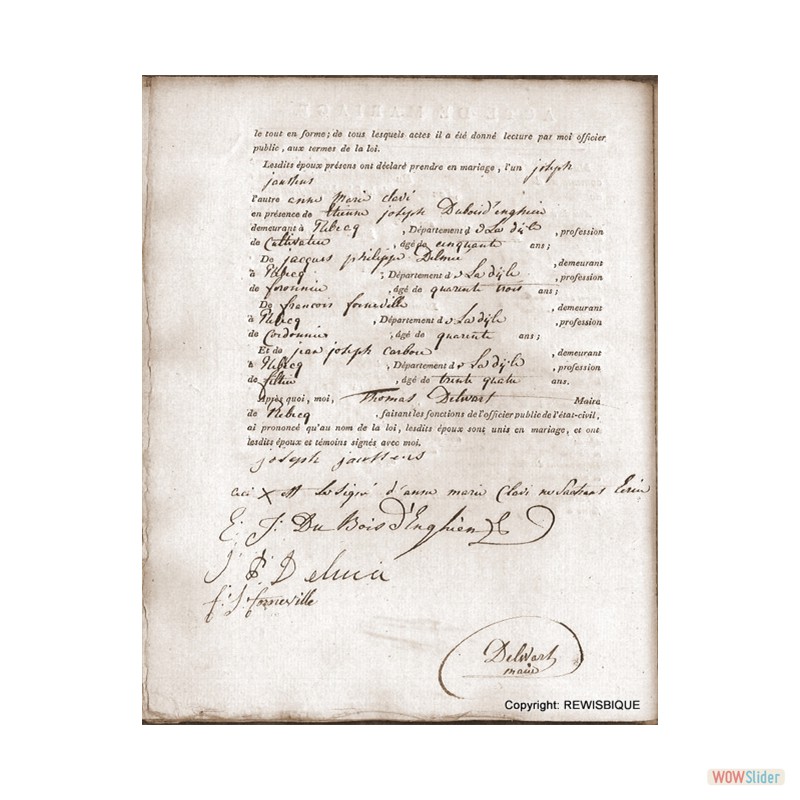 le tout en forme; de tous lesquels actes il a été donné lecture par moi officier
public, aux termes de la loi.
Lesdits époux présens ont déclaré prendre en mariage, l'un joseph
janssens
l'autre anne Marie clavi
en présence de Etienne joseph Duboisd'enghien
demeurant à Rebecq, Département de La dijle, profession
de Cultivateur, âgé de cinquante ans;
De jacques philippe Delmée, demeurant
à Rebecq; Département de La dijle, profession
de âgé de quarente trois ans;
De francois forneville, demeurant
à Rebecq, Département de La dijle, profession
de Cordonnier, âgé de quarente ans;
Et de jean joseph carbon, demeurant
à Rebecq, Département de La dijle, profession
de âgé de trente quatre ans.
Après quoi, moi, Thomas Delwart Maire
de Rebecq, faisant les fonctions de l'officier public de l'état-civil,
ai prononcé qu'au nom de la loi, lesdits époux sont unis en mariage, et ont
lesdits époux et témoins signés avec moi.
joseph janssens
ceci X est le signé d'anne marie Clavi ne sachant Ecrire
E: J: Du Bois d'Enghien
J P Delmée
f: J: forneville
Delwart
maire
Copyright: REWISBIQUE
WOWSlider